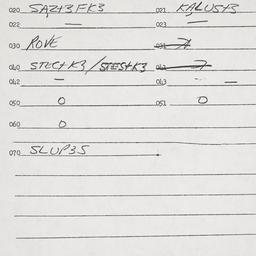 020 SAZ+3FK3 021 KALUS+3
022 — 023 —
030 ROVE 031
040 STEC+K3 / STES+K3
042 — 043 —
050 0 051 0
060 0
070 SLUP3S